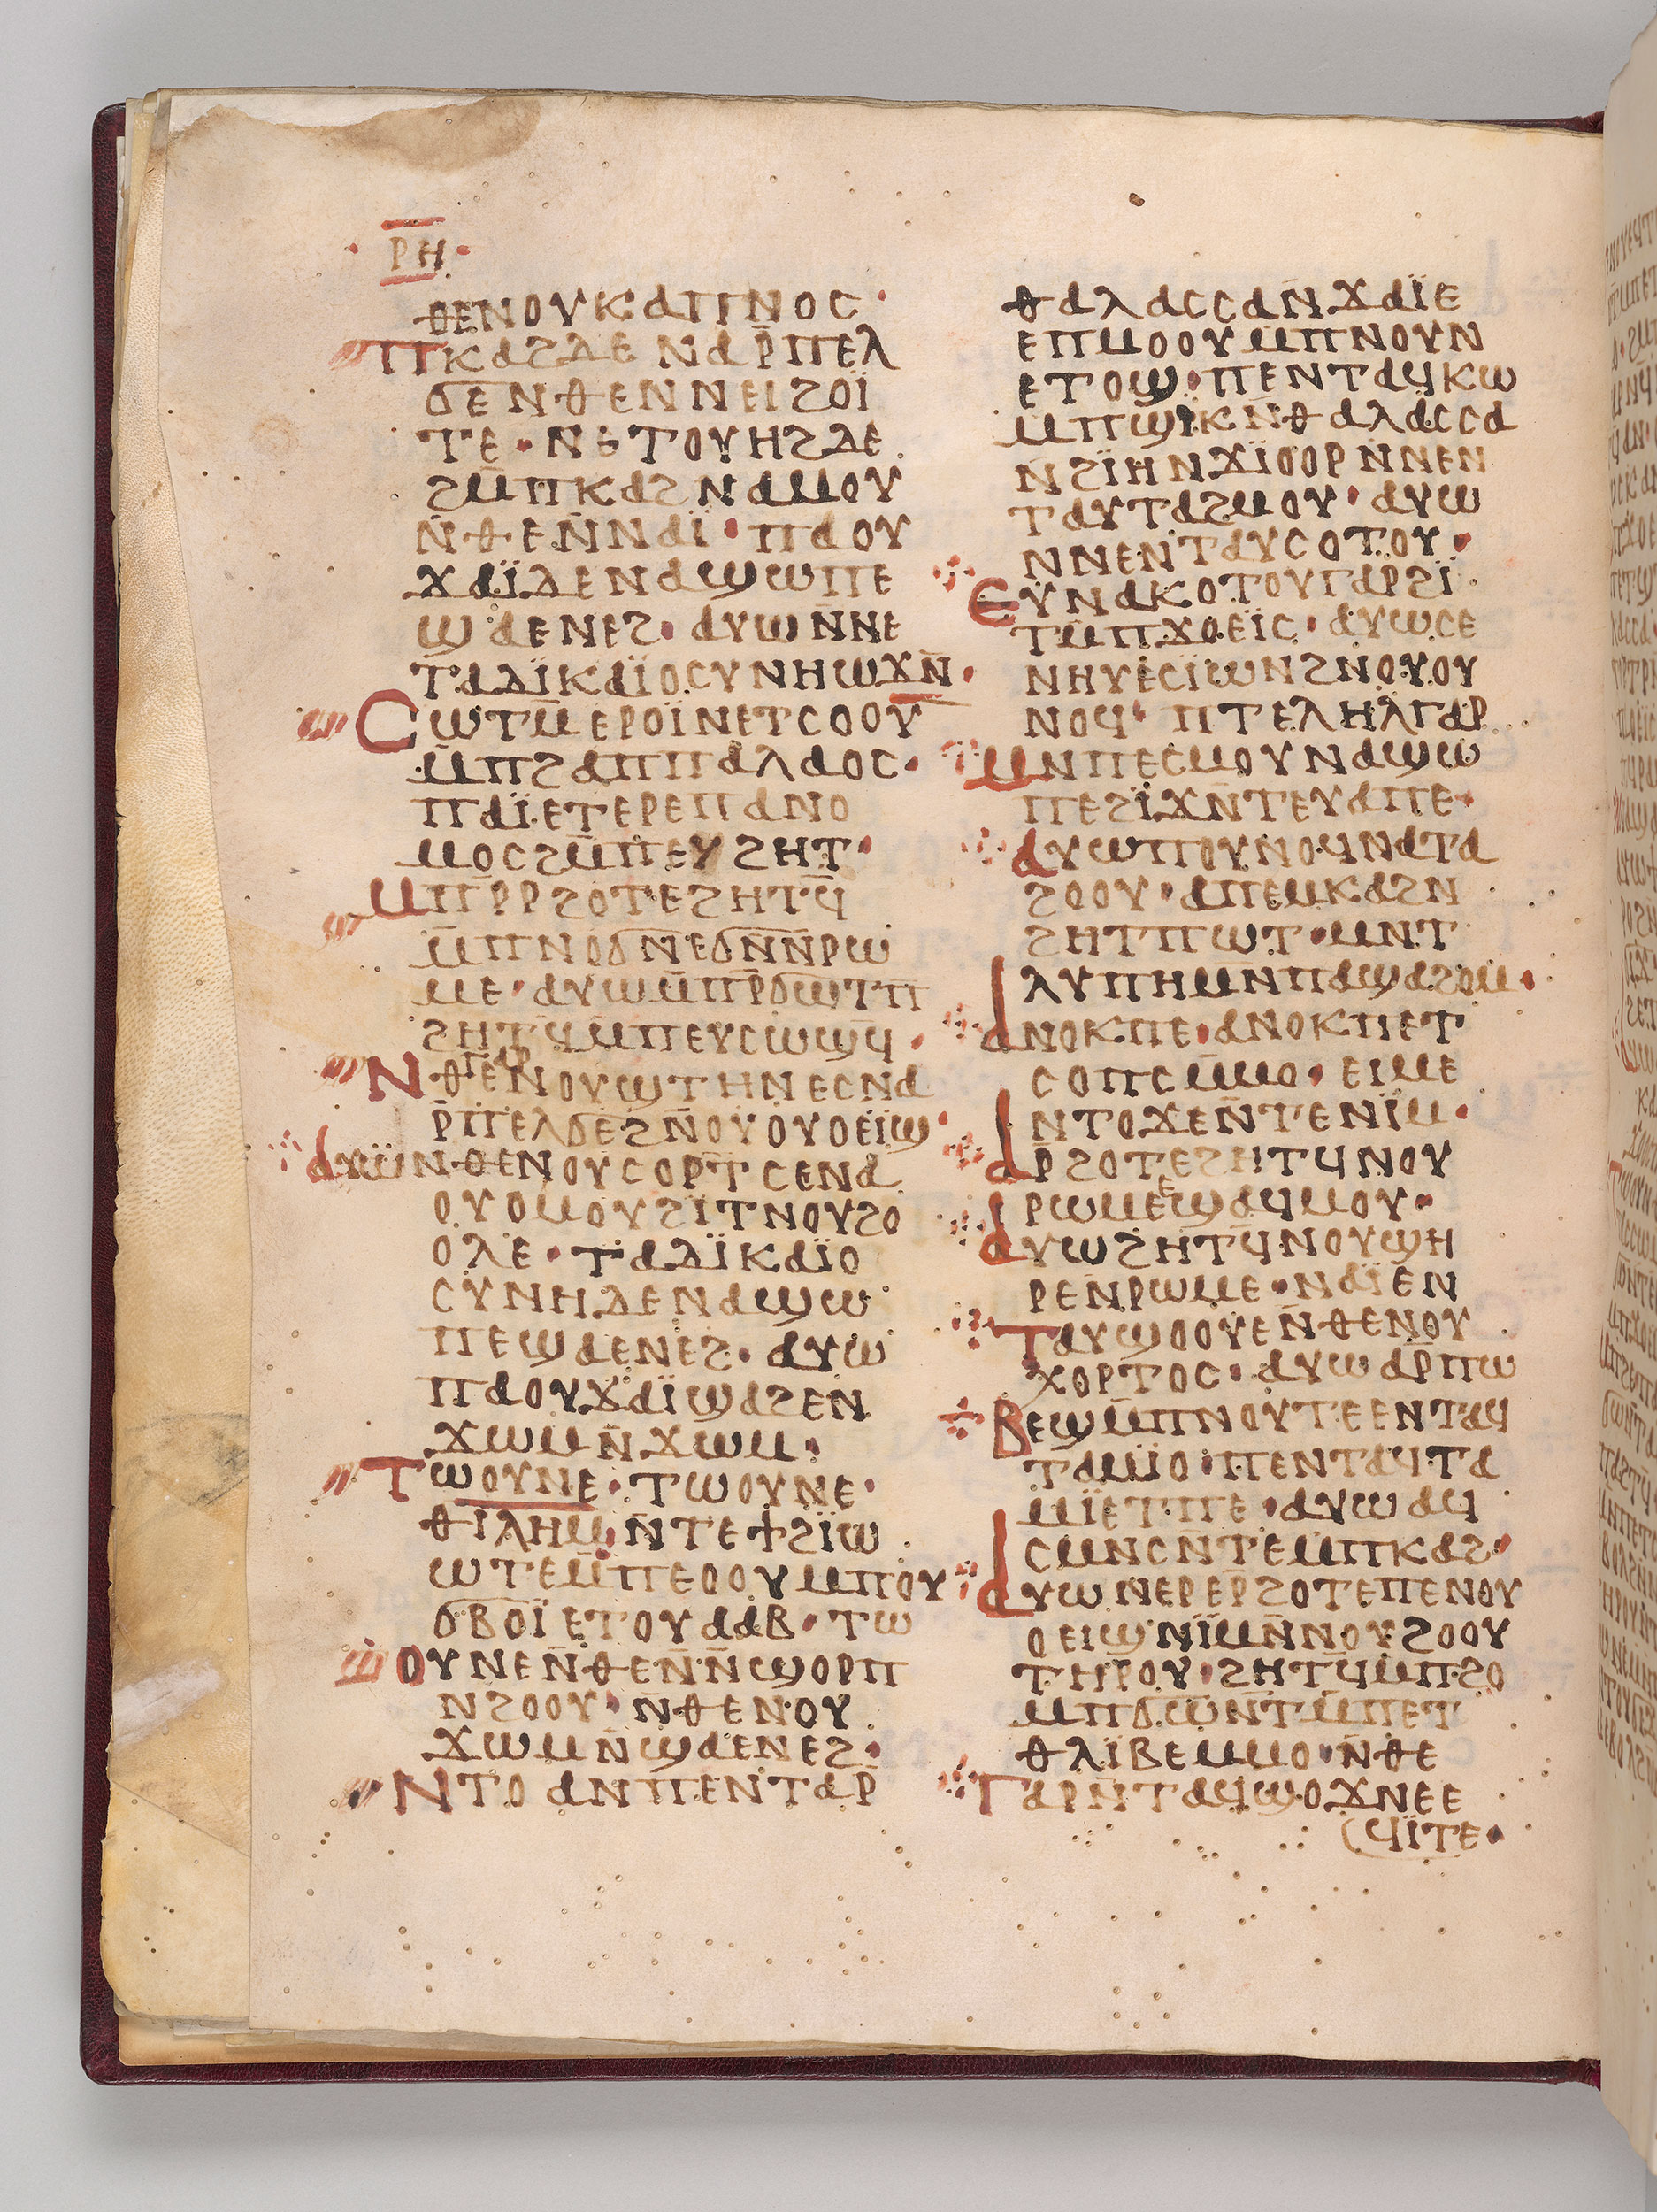 ⲣⲏ
ⲑⲉⲛⲟⲩⲕⲁⲡⲛⲟⲥ·
ⲡⲕⲁϩⲇⲉ ⲛⲁⲣ̄ⲡⲉⲗ
ϭⲉ ⲛⲑⲉⲛⲛⲉⲓϩⲟⲓ̈
ⲧⲉ · ⲛⲉⲧⲟⲩⲏϩⲇⲉ
ϩⲙ̄ⲡⲕⲁϩ ⲛⲁⲙⲟⲩ
ⲛ̄ⲑⲉⲛ̄ⲛⲁⲓ̈ · ⲡⲁⲟⲩ
ϫⲁⲓ̈ⲇⲉⲛⲁϣⲱⲡⲉ
ϣⲁⲉⲛⲉϩ· ⲁⲩⲱ ⲛ̄ⲛⲉ
ⲧⲁⲇⲓ̈ⲕⲁⲓ̈ⲟⲥⲩⲛⲏⲱϫⲛ̄·
ⲥⲱⲧⲙ̄ⲉⲣⲟⲓ̈ⲛⲉⲧⲥⲟⲟⲩ
ⲙ̄ⲡϩⲁⲡⲡⲁⲗⲁⲟⲥ·
ⲡⲁⲓ̈ⲉⲧⲉⲣⲉⲡⲁⲛⲟ
ⲙⲟⲥϩⲙ̄ⲡⲉⲩϩⲏⲧ·
ⲙⲡⲣ̄ⲣϩⲟⲧⲉϩⲏⲧϥ̄
ⲙ̄ⲡⲛⲟϭⲛⲉϭⲛ̄ⲛ̄ⲣⲱ
ⲙⲉ·ⲁⲩⲱⲙ̄ⲡⲣ̄ϭⲱⲧⲡ̄
ϩⲏⲧϥ̄ⲙ̄ⲡⲉⲩⲥⲱϣϥ̄·
ⲛⲑⲉⲅⲁⲣⲛⲟⲩϣⲧⲏⲛ ⲉⲥⲛⲁ
ⲣ̄ⲡⲉⲗϭⲉϩⲛ̄ⲟⲩⲟⲩⲟⲉⲓ̈ϣ·
ⲁⲩⲱⲛⲑⲉⲛⲟⲩⲥⲟⲣⲧ ⲥⲉⲛⲁ
ⲟⲩⲟⲙⲟⲩϩⲓⲧⲛⲟⲩϩⲟ
ⲟⲗⲉ · ⲧⲁⲇⲓ̈ⲕⲁⲓ̈ⲟ
ⲥⲩⲛⲏⲇⲉⲛⲁϣⲱ
ⲡⲉϣⲁⲉⲛⲉϩ· ⲁⲩⲱ
ⲡⲁⲟⲩϫⲁⲓ̈ϣⲁϩⲉⲛ
ϫⲱⲙⲛ̄ϫⲱⲙ·
ⲧⲱⲟⲩⲛⲉ·ⲧⲱⲟⲩⲛⲉ·
ⲑⲓⲗⲏⲙ̄ⲛ̄ⲧⲉϯϩⲓ̈ⲱ
ⲱⲧⲉⲙ̄ⲡⲉⲟⲟⲩⲙⲡⲟⲩ
ϭⲃⲟⲓ̈ⲉⲧⲟⲩⲁⲁⲃ·ⲧⲱ
ⲟⲩⲛⲉⲛ̄ⲑⲉⲛ̄ⲛ̄ϣⲟⲣⲡ
ⲛϩⲟⲟⲩ· ⲛⲑⲉⲛⲟⲩ
ϫⲱⲙⲛ̄ϣⲁⲉⲛⲉϩ·
ⲛⲧⲟ ⲁⲛⲡⲉⲛⲧⲁⲣ̄
ⲑⲁⲗⲁⲥⲥⲁⲛ̄ϫⲁⲓ̈ⲉ
ⲉⲡⲙⲟⲟⲩⲙ̄ⲡⲛⲟⲩⲛ
ⲉⲧⲟϣ·ⲡⲉⲛⲧⲁϥⲕⲱ
ⲙⲡϣⲓⲕⲛ̄ⲑⲁⲗⲁⲥⲥⲁ
ⲛ̄ϩⲓ̈ⲏⲛϫⲓ̈ⲟⲟⲣⲛ̄ⲛⲉⲛ
ⲧⲁⲩⲧⲁϩⲙⲟⲩ· ⲁⲩⲱ
ⲛⲛⲉⲛⲧⲁⲩⲥⲟⲧⲟⲩ·
ⲉⲩⲛⲁⲕⲟⲧⲟⲩⲅⲁⲣϩⲓ
ⲧⲙ̄ⲡϫⲟⲉⲓ̈ⲥ·ⲁⲩⲱⲥⲉ
ⲛⲏⲩⲉⲥⲓⲱⲛϩⲛⲟⲩⲟⲩ
ⲛⲟϥ· ⲡⲧⲉⲗⲏⲗⲅⲁⲣ
ⲙⲛⲡⲉⲥⲙⲟⲩⲛⲁϣⲱ
ⲡⲉϩⲓ̈ϫⲛ̄ⲧⲉⲩⲁⲡⲉ·
ⲁⲩⲱⲡⲟⲩⲛⲟϥⲛⲁⲧⲁ
ϩⲟⲟⲩ·ⲁⲡⲉⲙⲕⲁϩⲛ
ϩⲏⲧⲡⲱⲧ·ⲙⲛⲧ
ⲗⲩⲡⲏⲙⲛⲡⲁϣⲁϩⲟⲙ·
ⲁⲛⲟⲕⲡⲉ·ⲁⲛⲟⲕⲡⲉⲧ
ⲥⲟⲡⲥⲙ̄ⲙⲟ· ⲉⲓⲙⲉ
ⲛⲧⲟϫⲉⲛ̄ⲧⲉⲛⲓ̈ⲙ·
ⲁⲣ̄ϩⲟⲧⲉϩⲏⲧϥⲛⲟⲩ
ⲣⲱⲙⲉⲉϣⲁϥⲙⲟⲩ·
ⲁⲩⲱϩⲏⲧϥ̄ⲛⲟⲩϣⲏ
ⲣⲉⲛⲣⲱⲙⲉ·ⲛⲁⲓ̈ⲉⲛ
ⲧⲁⲩϣⲟⲟⲩⲉⲛ̄ⲑⲉⲛⲟⲩ
ⲭⲟⲣⲧⲟⲥ·ⲁⲩⲱⲁⲣ̄ⲡⲱ
ⲃⲉϣⲙ̄ⲡⲛⲟⲩⲧⲉⲉⲛⲧⲁϥ
ⲧⲁⲙⲓ̈ⲟ·ⲡⲉⲛⲧⲁϥⲧⲁ
ⲙⲓ̈ⲉⲧⲡⲉ·ⲁⲩⲱⲁϥ
ⲥⲙⲛⲥⲛ̄ⲧⲉⲙⲡⲕⲁϩ·
ⲁⲩⲱⲛⲉⲣⲉⲣ̄ϩⲟⲧⲉⲡⲉⲛⲟⲩ
ⲟⲉⲓϣⲛⲓ̈ⲙⲛ̄ⲛⲟⲩϩⲟⲟⲩ
ⲧⲏⲣⲟⲩ·ϩⲏⲧϥ̄ⲙ̄ⲡϩⲟ
ⲙⲡϭⲱⲛⲧⲙ̄ⲡⲉⲧ
ⲑⲗⲓⲃⲉⲙⲙⲟ·ⲛ̄ⲑⲉ
ⲅⲁⲣⲛ̄ⲧⲁϥϣⲟϫⲛⲉⲉ
ϥⲓ̈ⲧⲉ·